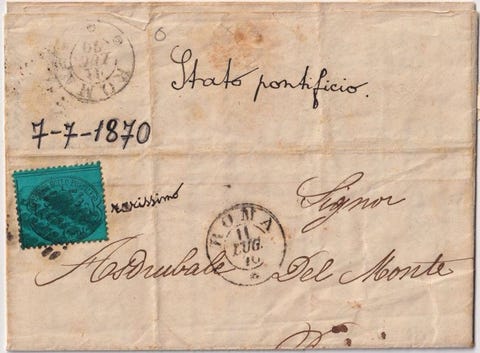 ROMA
Stato pontificio.
7-7-1870
rarissimo
Signor
ROMA
11
LUG.
70
Asdrubale Del Monte